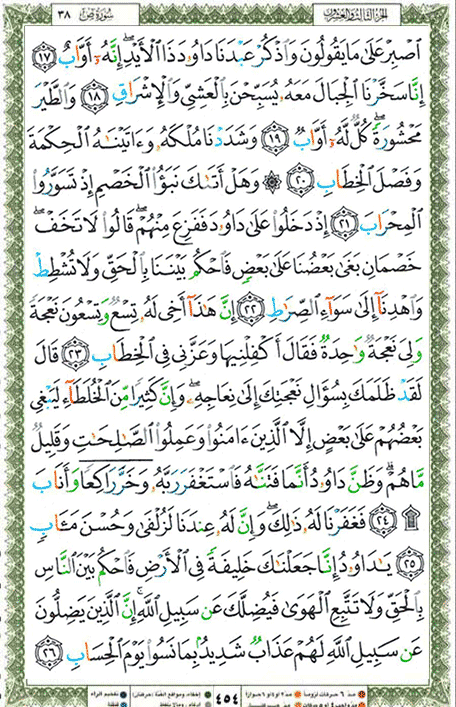 سُورَةُ صٓ ٣٨ الجزء الثالث والعشرون
ٱصۡبِرۡ عَلَىٰ مَا يَقُولُونَ وَٱذۡكُرۡ عَبۡدَنَا دَاوُۥدَ ذَا ٱلۡأَيۡدِۖ إِنَّهُۥٓ أَوَّابٌ ١٧
إِنَّا سَخَّرۡنَا ٱلۡجِبَالَ مَعَهُۥ يُسَبِّحۡنَ بِٱلۡعَشِيِّ وَٱلۡإِشۡرَاقِ ١٨ وَٱلطَّيۡرَ
مَحۡشُورَةٗۖ كُلّٞ لَّهُۥٓ أَوَّابٞ ١٩ وَشَدَدۡنَا مُلۡكَهُۥ وَءَاتَيۡنَٰهُ ٱلۡحِكۡمَةَ
وَفَصۡلَ ٱلۡخِطَابِ ٢٠ ۞ وَهَلۡ أَتَىٰكَ نَبَؤُاْ ٱلۡخَصۡمِ إِذۡ تَسَوَّرُواْ
ٱلۡمِحۡرَابَ ٢١ إِذۡ دَخَلُواْ عَلَىٰ دَاوُۥدَ فَفَزِعَ مِنۡهُمۡۖ قَالُواْ لَا تَخَفۡۖ
خَصۡمَانِ بَغَىٰ بَعۡضُنَا عَلَىٰ بَعۡضٖ فَٱحۡكُم بَيۡنَنَا بِٱلۡحَقِّ وَلَا تُشۡطِطۡ
وَٱهۡدِنَآ إِلَىٰ سَوَآءِ ٱلصِّرَٰطِ ٢٢ إِنَّ هَٰذَآ أَخِي لَهُۥ تِسۡعٞ وَتِسۡعُونَ نَعۡجَةٗ
وَلِيَ نَعۡجَةٞ وَٰحِدَةٞ فَقَالَ أَكۡفِلۡنِيهَا وَعَزَّنِي فِي ٱلۡخِطَابِ ٢٣ قَالَ
لَقَدۡ ظَلَمَكَ بِسُؤَالِ نَعۡجَتِكَ إِلَىٰ نِعَاجِهِۦۖ وَإِنَّ كَثِيرٗا مِّنَ ٱلۡخُلَطَآءِ لَيَبۡغِي
بَعۡضُهُمۡ عَلَىٰ بَعۡضٍ إِلَّا ٱلَّذِينَ ءَامَنُواْ وَعَمِلُواْ ٱلصَّٰلِحَٰتِ وَقَلِيلٞ
مَّا هُمۡۗ وَظَنَّ دَاوُۥدُ أَنَّمَا فَتَنَّٰهُ فَٱسۡتَغۡفَرَ رَبَّهُۥ وَخَرَّۤ رَاكِعٗاۤ وَأَنَابَ
۩ ٢٤ فَغَفَرۡنَا لَهُۥ ذَٰلِكَۖ وَإِنَّ لَهُۥ عِندَنَا لَزُلۡفَىٰ وَحُسۡنَ مَـَٔابٖ
٢٥ يَٰدَاوُۥدُ إِنَّا جَعَلۡنَٰكَ خَلِيفَةٗ فِي ٱلۡأَرۡضِ فَٱحۡكُم بَيۡنَ ٱلنَّاسِ
بِٱلۡحَقِّ وَلَا تَتَّبِعِ ٱلۡهَوَىٰ فَيُضِلَّكَ عَن سَبِيلِ ٱللَّهِۚ إِنَّ ٱلَّذِينَ يَضِلُّونَ
عَن سَبِيلِ ٱللَّهِ لَهُمۡ عَذَابٞ شَدِيدُۢ بِمَا نَسُواْ يَوۡمَ ٱلۡحِسَابِ ٢٦
٤٥٤